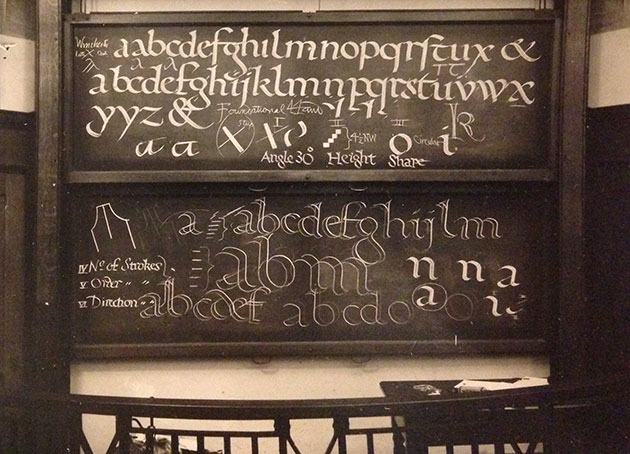 aabcdefghilmnopqrſtux &
abcdefghijklmnpqrstuvwx
yyz & Foundational Hand
a a
I II III
4½ NW Circular
Angle 30° Height Shape
a abcdefghijlm
IV Nº of Strokes abm n n a
V Order " "
VI Direction " " abcdef abcdo a i